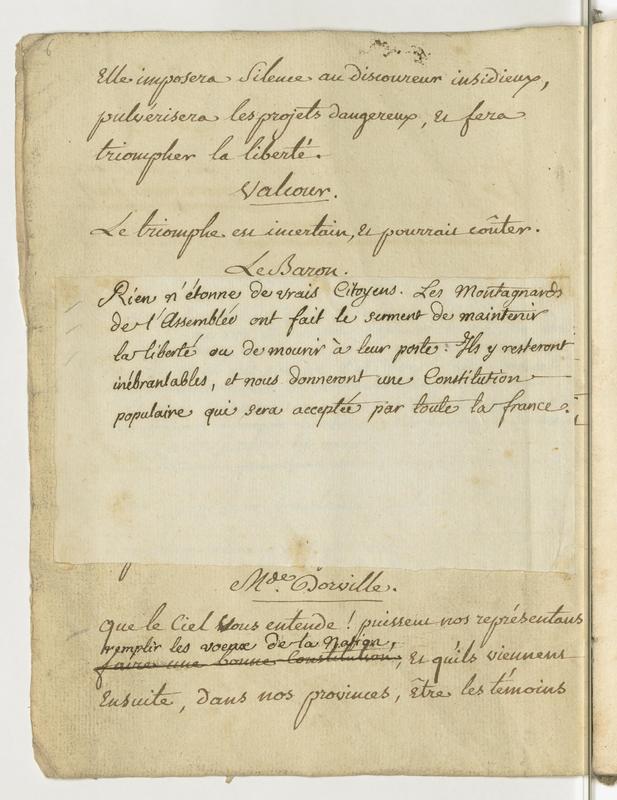 6
Elle imposera Silence au discoureur insidieux,
pulvérisera les projets dangereux, et fera
triompher la liberté.
Valcour.
Le triomphe est incertain, et pourrait coûter.
Le Baron.
Rien n'étonne de vrais Citoyens. Les Montagnards
de l'Assemblée ont fait le serment de maintenir
la liberté ou de mourir à leur poste. Ils y resteront
inébranlables, et nous donneront une Constitution
populaire qui sera acceptée par toute la france.
Mde. Dorville.
que le Ciel vous entende ! puissent nos représentans
remplir les voeux de la Nation,
faire une bonne Constitution, et qu'ils viennent
Ensuite, dans nos provinces, être les témoins